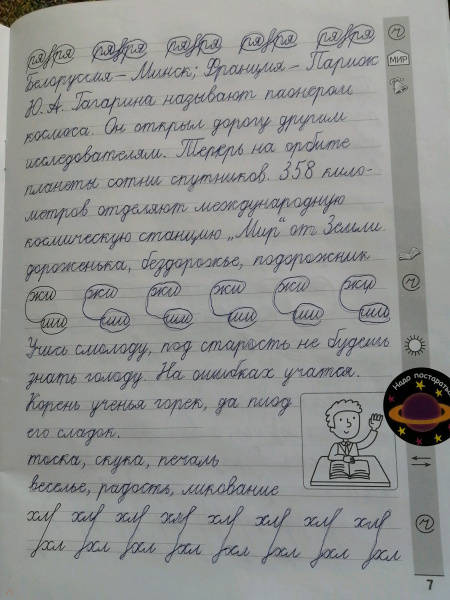 ря ря ря ря ря ря ря ря ря ря
Белоруссия – Минск; Франция – Париж
Ю. А. Гагарина называют пионером
космоса. Он открыл дорогу другим
исследователям. Теперь на орбите
планеты сотни спутников. 358 кило-
метров отделяют международную
космическую станцию „Мир“ от Земли.
дороженька, бездорожье, подорожник
жи жи жи жи жи жи
ши ши ши ши ши ши
Учись смолоду, под старость не будешь
знать голоду. На ошибках учатся.
Корень ученья горек, да плод
его сладок.
тоска, скука, печаль
веселье, радость, ликование
хл хл хл хл хл хл хл хл
хл хл хл хл хл хл хл хл
МИР
Надо постараться
7